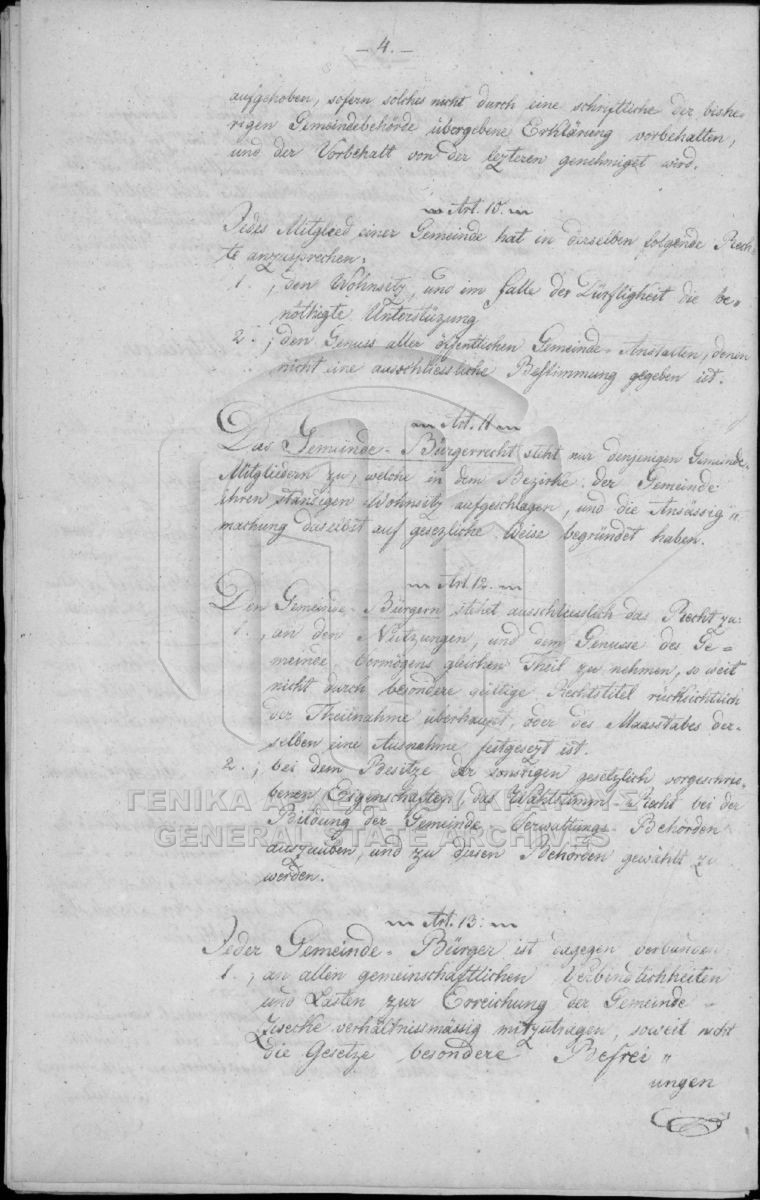 - 4. -
aufgehoben, sofern solches nicht durch eine schriftliche der bishe-
rigen Gemeindebehörde übergebene Erklärung vorbehalten,
und der Vorbehalt von der lezteren genehmiget wird.
Art. 10.
Jedes Mitglied einer Gemeinde hat in derselben folgende Rech-
te anzusprechen:
1., den Wohnsitz, und im Falle der Dürftigkeit die be-
nöthigte Unterstüzung
2., den Genuss aller öffentlichen Gemeinde-Anstalten, denen
nicht eine ausschliessliche Bestimmung gegeben ist.
Art. 11
Das Gemeinde-Bürgerrecht steht nur denjenigen Gemeinde-
Mitgliedern zu, welche in dem Bezirke der Gemeinde
ihren ständigen Wohnsitz aufgeschlagen, und die Ansässig"
machung daselbst auf gesezliche Weise begründet haben.
Art. 12.
Den Gemeinde-Bürgern stehet ausschliesslich das Recht zu:
1., an den Nutzungen, und dem Genusse des Ge-
meinde Vermögens gleichen Theil zu nehmen, so weit
nicht durch besondere gültige Rechtstitel rücksichtlich
der Theilnahme überhaupt, oder des Maasstabes der-
selben eine Ausnahme festgesezt ist.
2., bei dem Besitze der sonstigen gesetzlich vorgeschrie-
benen Eigenschaften das Wahlstimm-Recht bei der
Bildung der Gemeinde Verwaltungs-Behörden
auszuüben, und zu diesen Behörden gewählt zu
werden.
ΓΕΝΙΚΑ ΑΡΧΕΙΑ ΤΟΥ ΚΡΑΤΟΥΣ
GENERAL STATE ARCHIVES
Art. 13.
Jeder Gemeinde-Bürger ist dagegen verbunden
1., an allen gemeinschaftlichen Verbindlichkeiten
und Lasten zur Erreichung der Gemeinde-
Zwecke verhältnissmässig mitzutragen, soweit nicht
die Gesetze besondere Befrei"
ungen